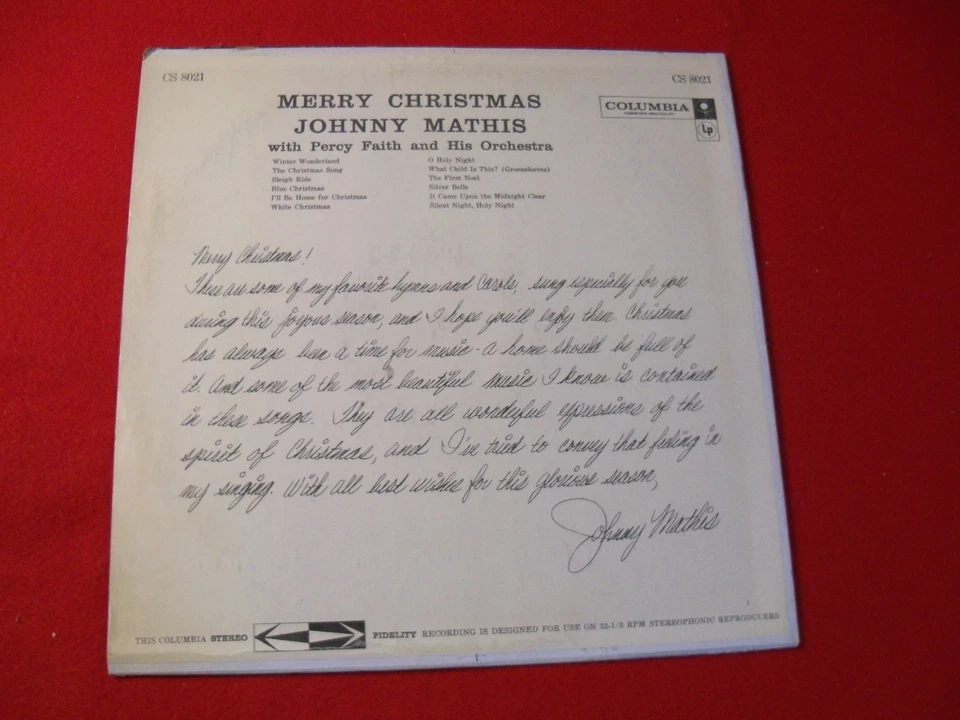 CS 8021
CS 8021
MERRY CHRISTMAS
JOHNNY MATHIS
with Percy Faith and His Orchestra
COLUMBIA
Lp
Winter Wonderland
The Christmas Song
Sleigh Ride
Blue Christmas
I'll Be Home for Christmas
White Christmas
O Holy Night
What Child Is This? (Greensleeves)
The First Noel
Silver Bells
It Came Upon the Midnight Clear
Silent Night, Holy Night
Merry Christmas!
These are some of my favorite hymns and Carols, sung especially for you
during this joyous season, and I hope you'll enjoy them. Christmas
has always been a time for music - a home should be full of
it. And some of the most beautiful music I know is contained
in these songs. They are all wonderful expressions of the
spirit of Christmas, and I've tried to convey that feeling in
my singing. With all best wishes for this glorious season,
Johnny Mathis
THIS COLUMBIA STEREO FIDELITY RECORDING IS DESIGNED FOR USE ON 33-1/3 RPM STEREOPHONIC REPRODUCERS